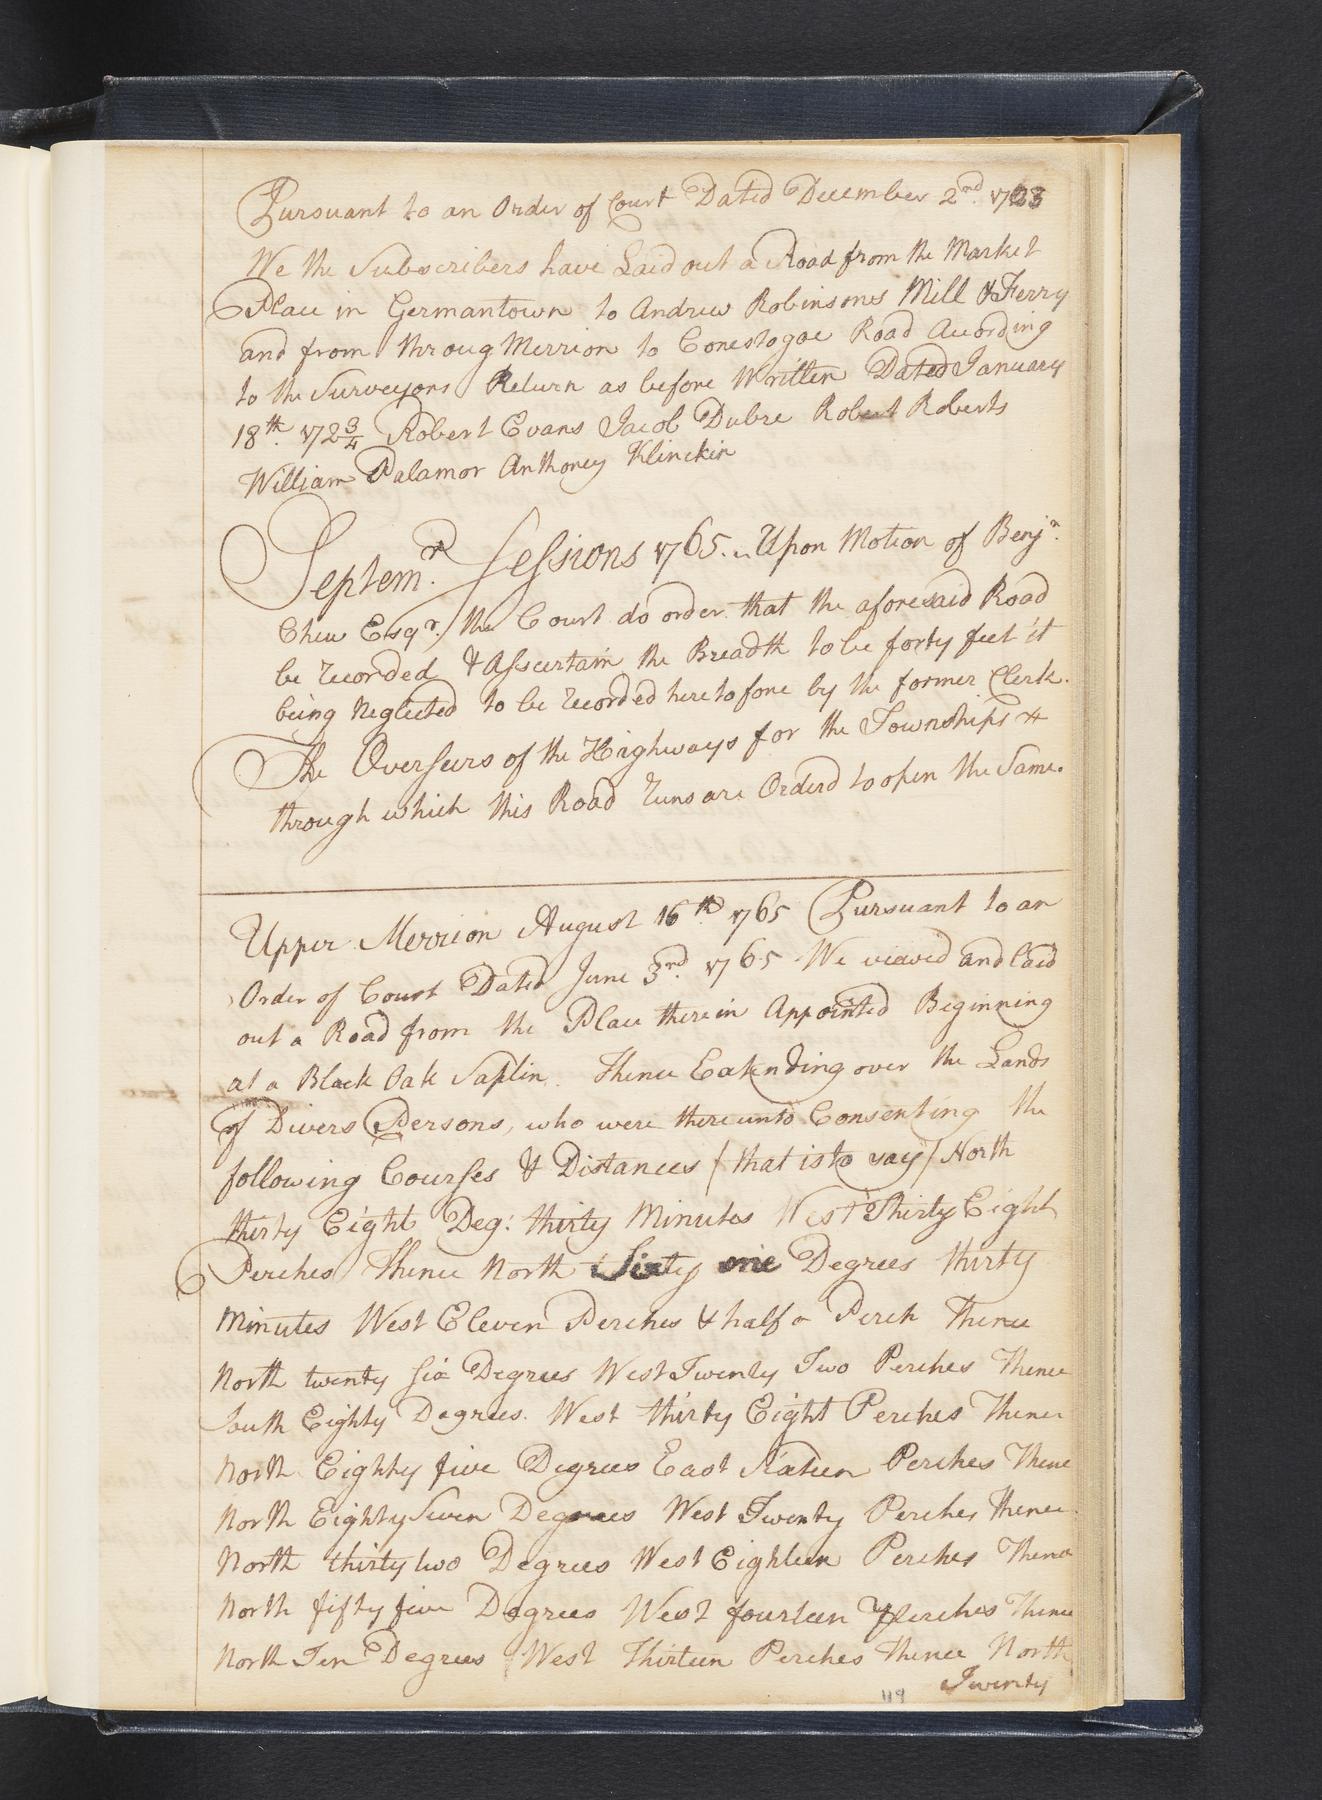 Pursuant to an Order of Court Dated December 2nd. 1723
We the Subscribers have Laid out a Road from the Market
Place in Germantown to Andrew Robinsons Mill & Ferry
and from throug Merrion to Conestogoe Road Acording
to the Surveyors Return as before Written Dated January
18th. 172¾ Robert Evans Jacob Dubre Robert Roberts
William Palamor Anthoney Klinckin
Septemr. Sessions 1765. Upon Motion of Benjn.
Chew Esqr. the Court do order that the aforesaid Road
be recorded & Ascertain the Breadth to be forty feet it
being Neglected to be recorded heretofore by the former Clerk.
The Overseers of the Highways for the Townships
through which this Road runs are Orderd to open the Same.
Upper Merrion August 16th. 1765 Pursuant to an
Order of Court Dated June 3rd. 1765 We viewed and laid
out a Road from the Place therein Appointed Beginning
at a Black Oak Saplin. Thence Extending over the Lands
of Divers Persons, who were thereunto Consenting the
following Courses & Distances (that is to say) North
thirty Eight Deg: thirty Minutes West Thirty Eight
Perches Thence North Sixty one Degrees thirty
Minutes West Eleven Perches & half a Perch Thence
North twenty six Degrees West Twenty Two Perches Thence
South Eighty Degrees. West thirty Eight Perches Thence
North Eighty five Degrees East Sixteen Perches Thence
North Eighty Seven Degrees West Twenty Perches thence
North thirty two Degrees West Eighteen Perches Thence
North fifty five Degrees West fourteen Perches Thence
North Ten Degrees West Thirteen Perches Thence North
Twenty
119